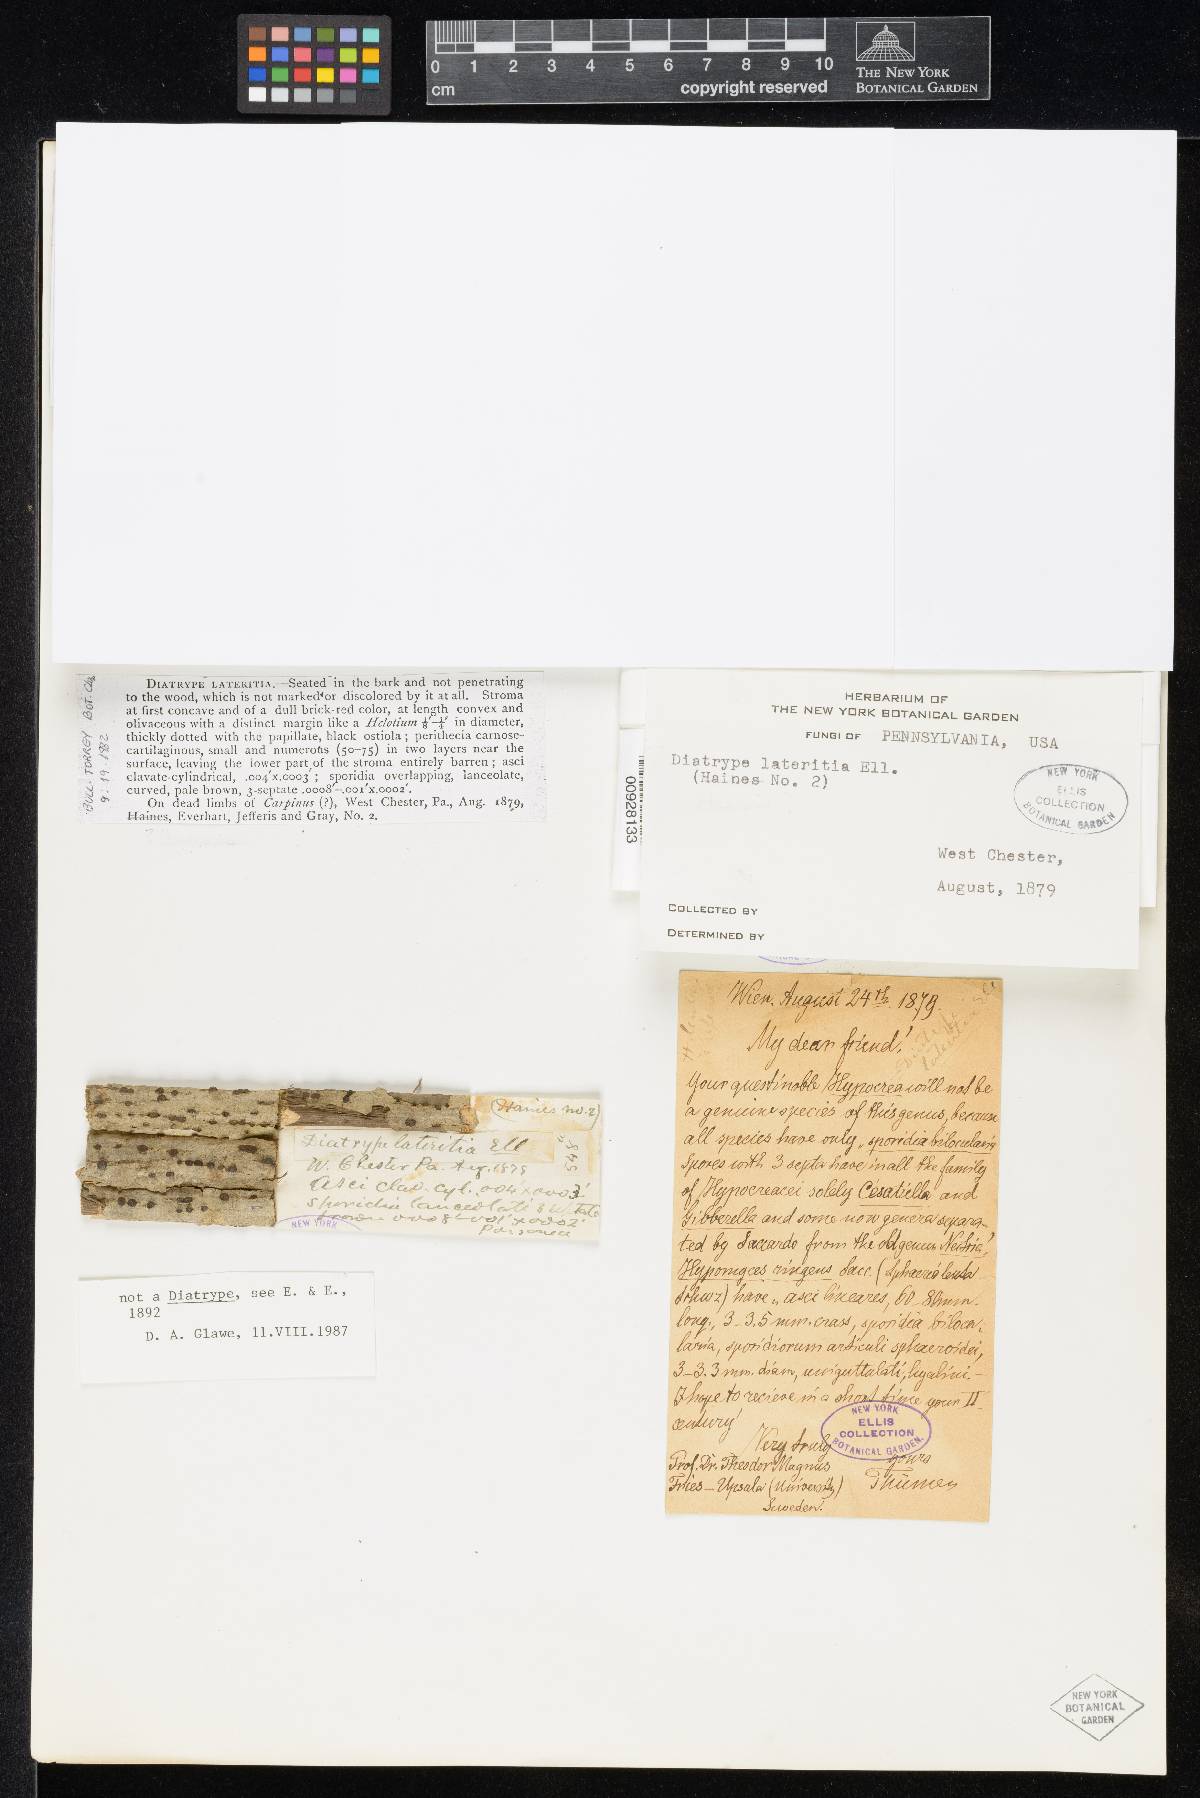 0 1 2 3 4 5 6 7 8 9 10
cm
copyright reserved
THE NEW YORK
BOTANICAL GARDEN
BULL. TORREY BOT. Club
9: 19. 1882
DIATRYPE LATERITIA.—Seated in the bark and not penetrating
to the wood, which is not marked or discolored by it at all. Stroma
at first concave and of a dull brick-red color, at length convex and
olivaceous with a distinct margin like a Helotium ⅛′–¼′ in diameter,
thickly dotted with the papillate, black ostiola; perithecia carnose-
cartilaginous, small and numerous (50–75) in two layers near the
surface, leaving the lower part of the stroma entirely barren; asci
clavate-cylindrical, .004′x.0003′; sporidia overlapping, lanceolate,
curved, pale brown, 3-septate .0008′–.001′x.0002′.
On dead limbs of Carpinus (?), West Chester, Pa., Aug. 1879,
Haines, Everhart, Jefferis and Gray, No. 2.
00928133
HERBARIUM OF
THE NEW YORK BOTANICAL GARDEN
FUNGI OF PENNSYLVANIA, USA
Diatrype lateritia Ell.
(Haines No. 2)
NEW YORK
ELLIS
COLLECTION
BOTANICAL GARDEN
West Chester,
August, 1879
COLLECTED BY
DETERMINED BY
(Haines no. 2)
Diatrype lateritia Ell
W. Chester Pa. Aug. 1879
Asci clav. cyl. .004 x .0003′
Sporidia lanceolate 3 septate
brown .0008–.001′ x .0002′
NEW YORK
not a Diatrype, see E. & E.,
1892
D. A. Glawe, 11.VIII.1987
Wien. August 24th. 1879.
My dear friend!
Your questinoble Hypocrea will not be
a genuine species of this genus, because
all species have only „sporidia bilocularia
Spores with 3 septa have in all the family
of Hypocreacei solely Cesatiella and
Gibberella and some now genera separa-
ted by Saccardo from the old genus Nectria!
Hypomyces ringens Sacc. (Sphaeria lenta
Schwz) have „asci lineares, 60–80 mm.
long., 3–3.5 mm. crass, sporidia bilocu-
laria, sporidiorum articuli sphaeroidei,
3–3.3 mm. diam, uniguttulati, hyalini.–
I hope to recieve in a short time your II
century!
Very truly
yours
Thümen
Prof. Dr. Theodor Magnus
Fries – Upsala (University)
Sweden.
NEW YORK
ELLIS
COLLECTION
BOTANICAL GARDEN.
NEW YORK
BOTANICAL
GARDEN